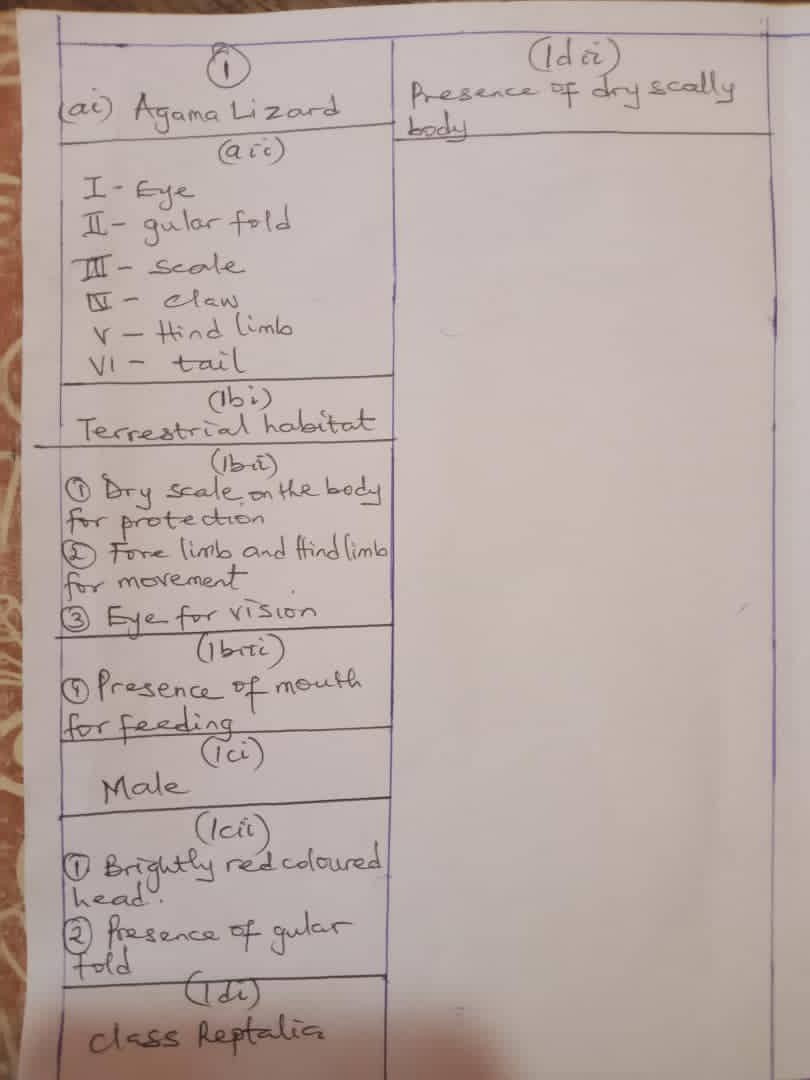 ①
(ai) Agama Lizard
(aii)
I - Eye
II - gular fold
III - scale
IV - claw
V - Hind limb
VI - tail
(1bi)
Terrestrial habitat
(1bii)
① Dry scale on the body
for protection
② Fore limb and Hind limb
for movement
③ Eye for vision
(1biii)
④ Presence of mouth
for feeding
(1ci)
Male
(1cii)
① Brightly red coloured
head.
② Presence of gular
fold
(1di)
class Reptalia
(1dii)
Presence of dry scally
body